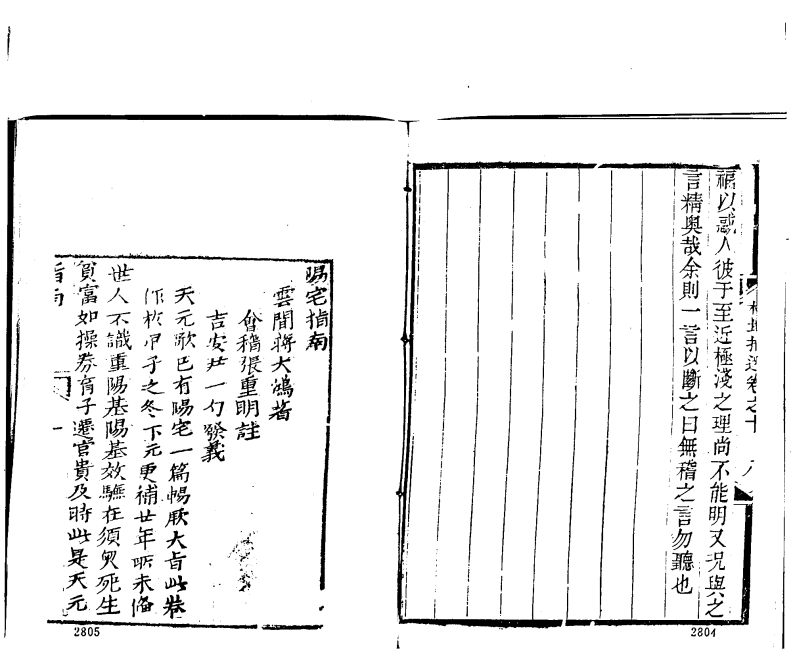 福以惑人彼于至近極淺之理尚不能明又况與之
言精奥哉余則一言以斷之曰無稽之言勿聽也
卷之十
八
2804
陽宅指南
雲間蔣大鴻著
會稽張重明註
吉安尹一勺發義
天元歌已有陽宅一篇暢厥大旨此卷
作於甲子之冬下元更補廿年所未俻
世人不識重陽基陽基效驗在須臾死生
貧富如操券育子遷官貴及時此是天元
指南
一
2805